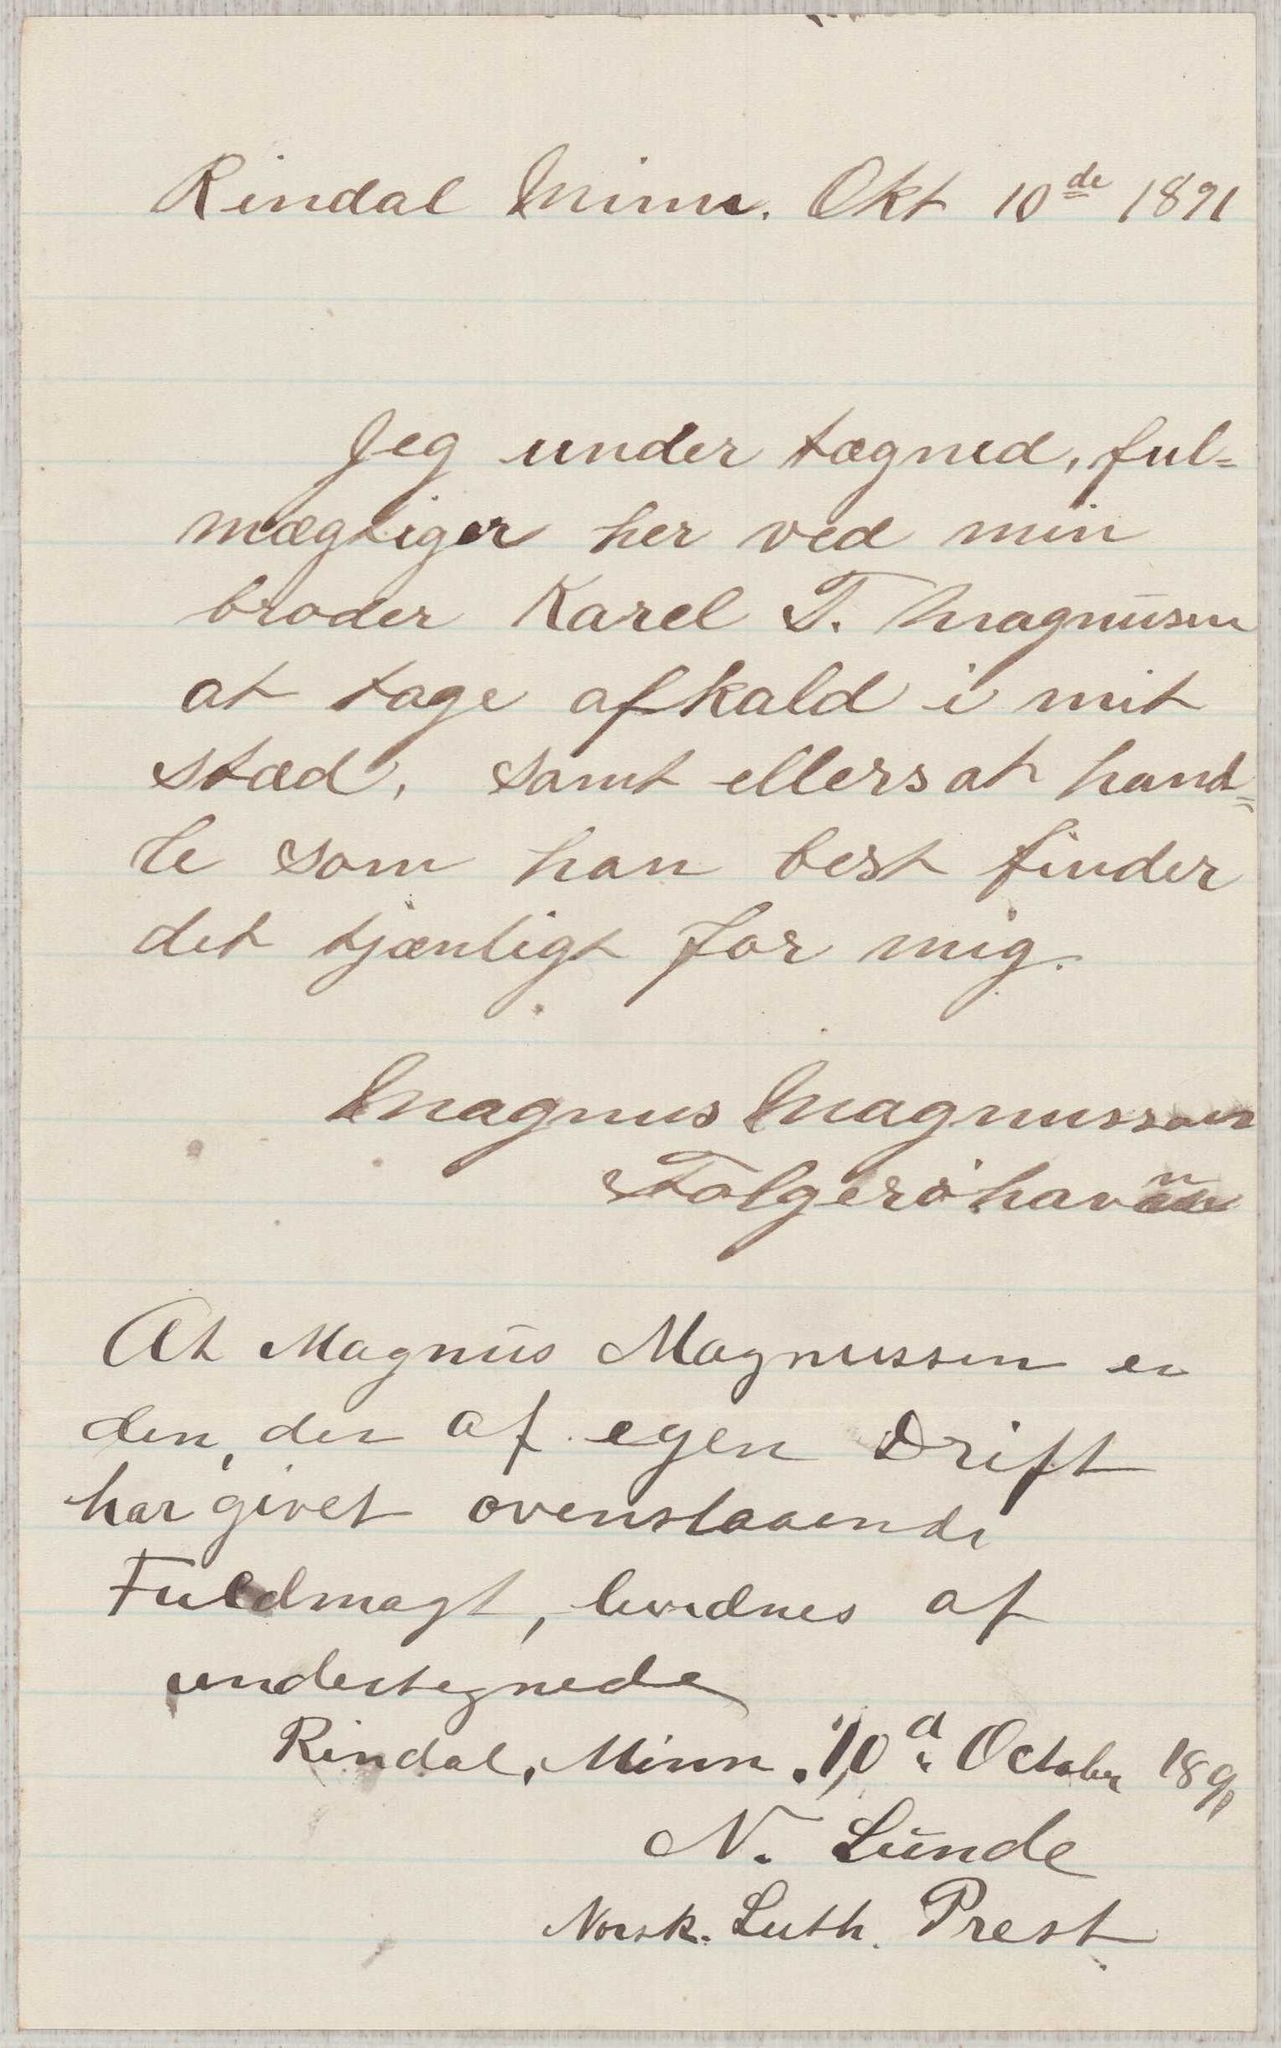 Rindal Minn. Okt 10de 1891
Jeg under tægned, ful=
mægtiger her ved min
broder Karel T. Magnusen
at tage afkald i mit
stæd, samt ellers at hand=
le som han best finder
det tjænligt for mig.
Magnus Magnusson
Folgerøhavn
At Magnus Magnussen er
den, der af egen Drift
har givet ovenstaaende
Fuldmagt, bevidnes af
undertegnede
Rindal, Minn. 10de October 1891
N. Lunde
Norsk. Luth. Prest